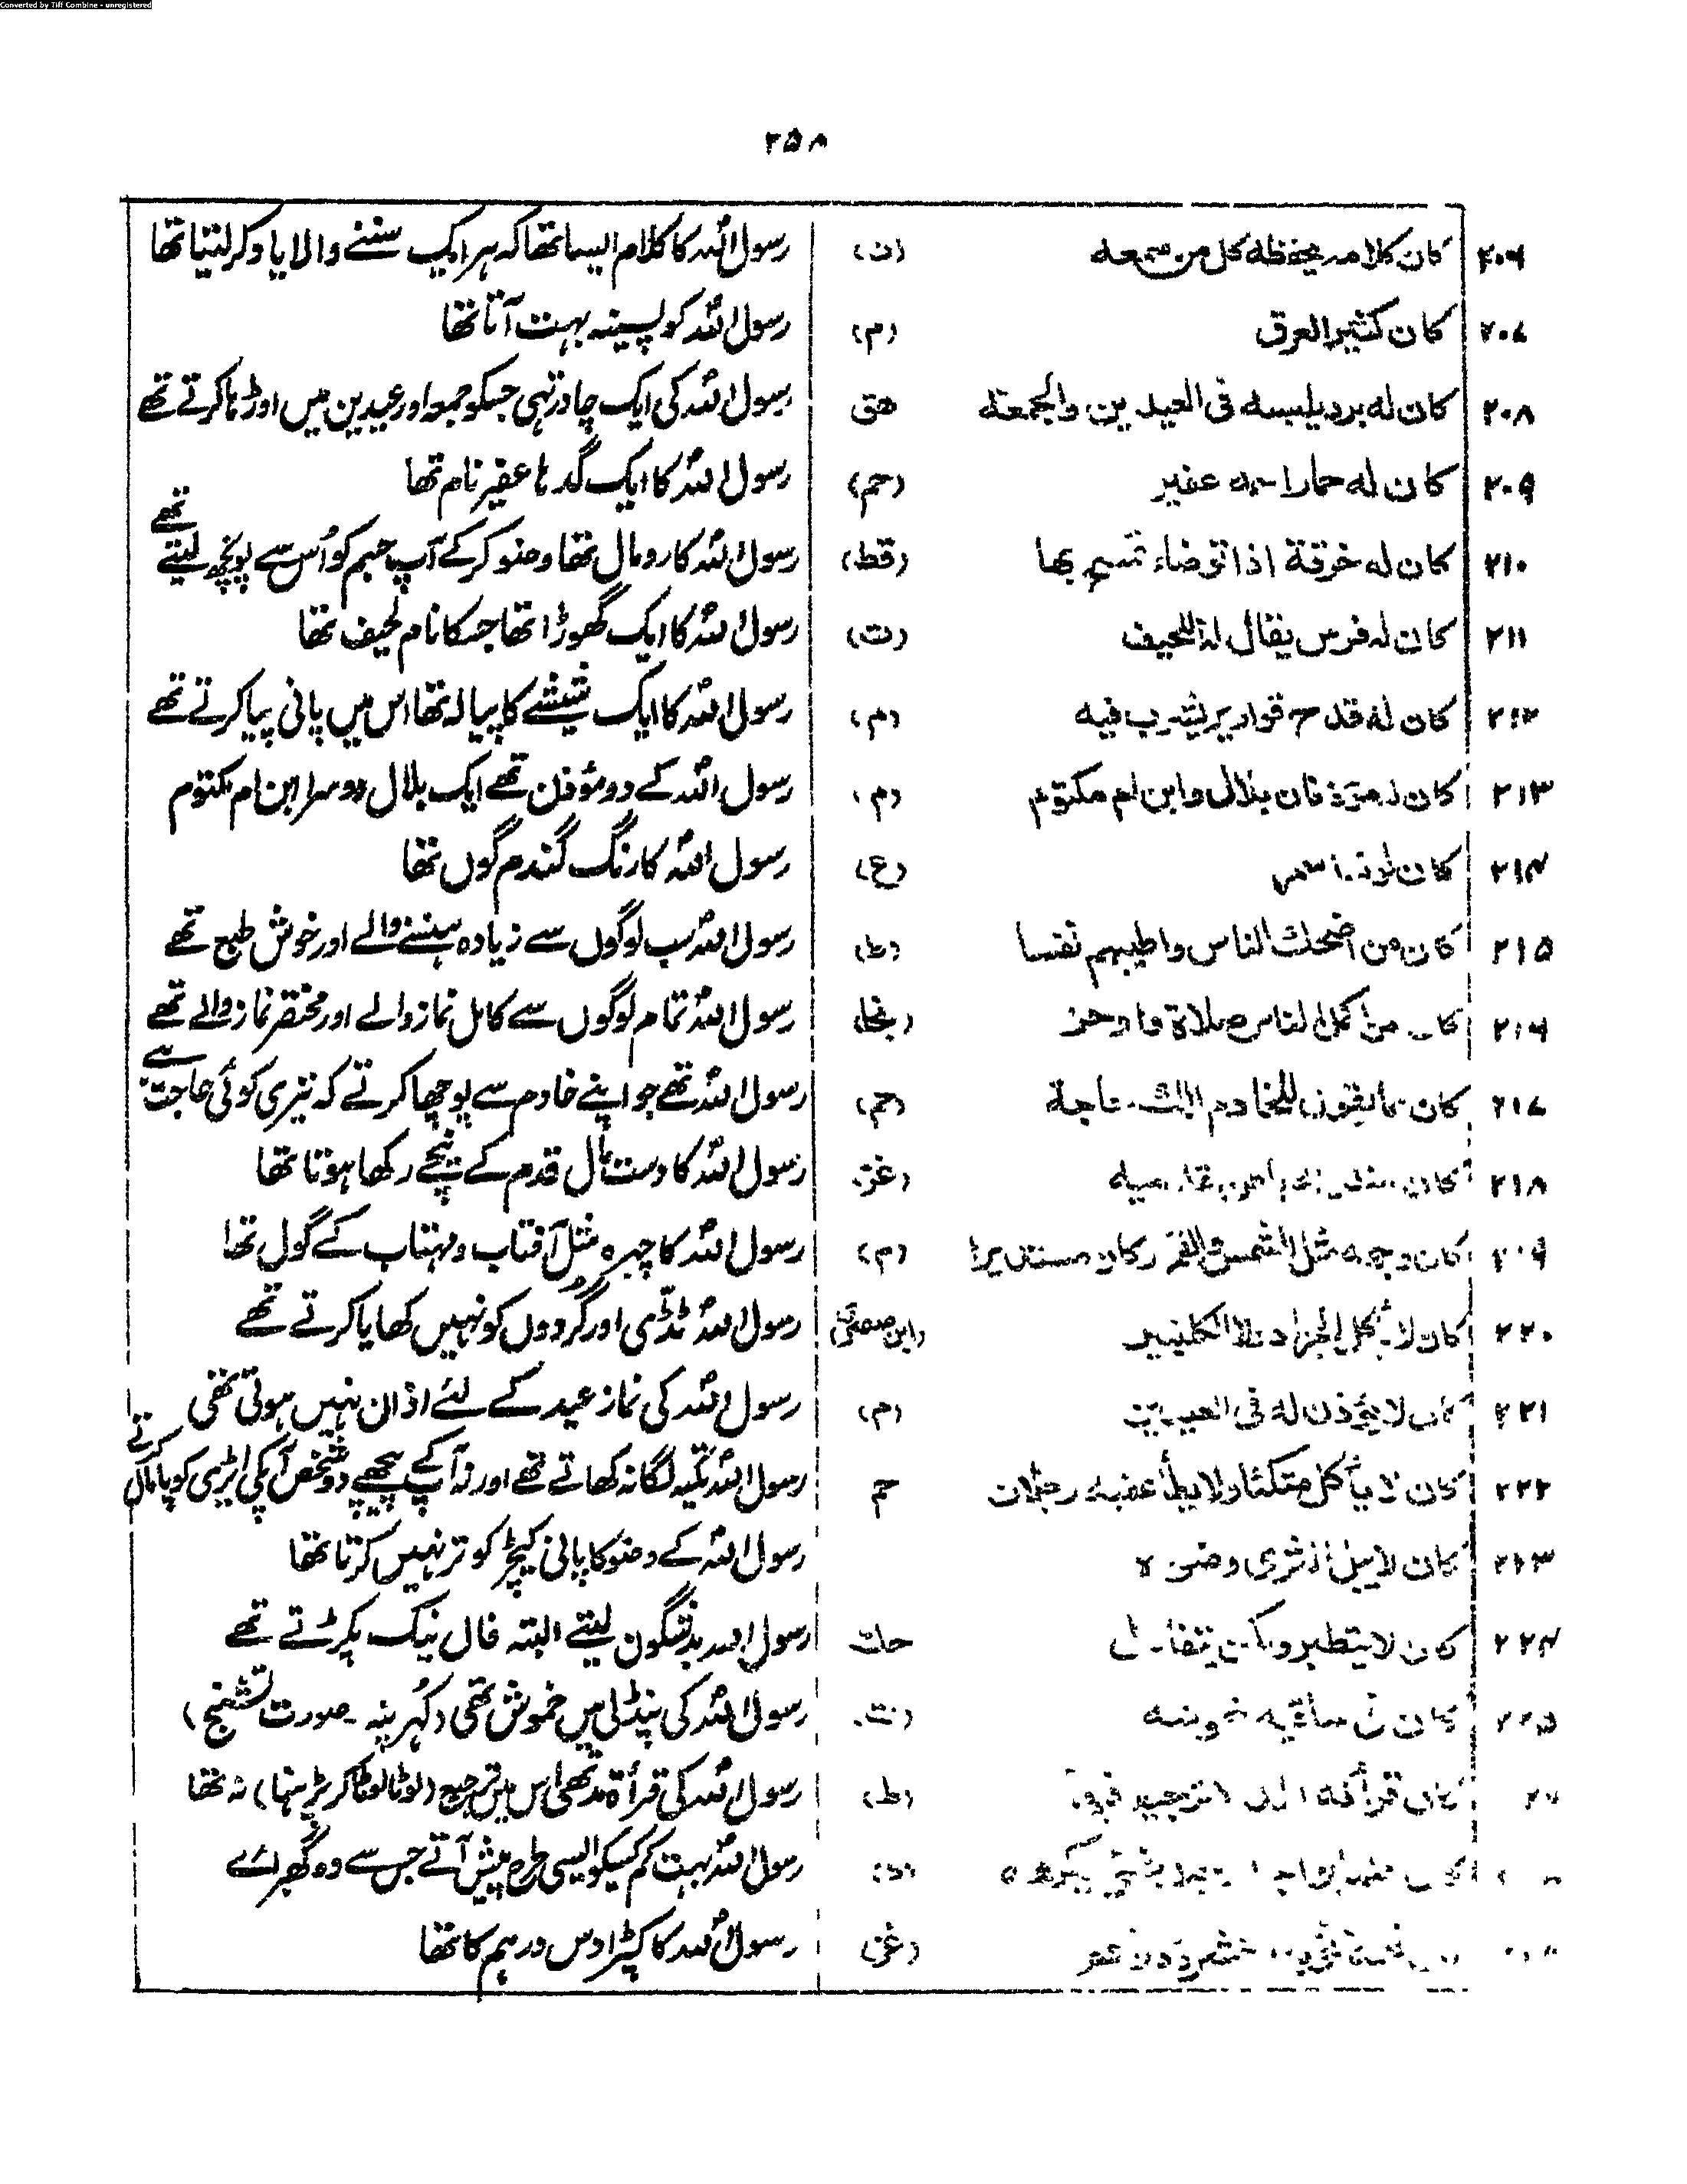 Converted by Tiff Combine - unregistered
۲۵۸
۲۰۶ كان كلامه يحفظه كل من سمعه (ن) رسول اللہ کا کلام ایسا تھا کہ ہر ایک سننے والا یاد کر لیتا تھا
۲۰۷ كان كثير العرق (م) رسول اللہ کو پسینہ بہت آتا تھا
۲۰۸ كان له برد يلبسه فى العيدين والجمعة هق رسول اللہ کی ایک چادر تہی جسکو جمعہ اور عیدین میں اوڑہا کرتے تھے
۲۰۹ كان له حمار اسمه عفير (حم) رسول اللہ کا ایک گدہا عفیر نام تھا
۲۱۰ كان له خرقة اذا توضاء تمسح بها (قط) رسول اللہ کا رومال تھا وضو کر کے آپ جسم کو اُس سے پونچھ لیتے تھے
۲۱۱ كان له فرس يقال له اللحيف (ت) رسول اللہ کا ایک گھوڑا تھا جسکا نام لحیف تھا
۲۱۲ كان له قدح قوارير يشرب فيه (م) رسول اللہ کا ایک شیشے کا پیالہ تھا اس میں پانی پیا کرتے تھے
۲۱۳ كان له مؤذنان بلال وابن ام مكتوم (م) رسول اللہ کے دو مؤذن تھے ایک بلال دوسرا ابن ام مکتوم
۲۱۴ كان لونه اسمر (ع) رسول اللہ کا رنگ گندم گوں تھا
۲۱۵ كان من اضحك الناس واطيبهم نفسا (ط) رسول اللہ سب لوگوں سے زیادہ ہنسنے والے اور خوش طبع تھے
۲۱۶ من اكمل الناس صلاة رسول اللہ تمام لوگوں سے کامل نماز والے اور مختصر نماز والے تھے
۲۱۷ كان مما يقول للخادم الك حاجة (حم) رسول اللہ تھے جو اپنے خادم سے پوچھا کرتے کہ تیری کوئی حاجت ہے
۲۱۸ كان رسول اللہ کا دست مال قدم کے نیچے رکھا ہوتا تھا
كان وجهه مثل الشمس والقمر وكان مستديرا (م) رسول اللہ کا چہرہ مثل آفتاب و مہتاب کے گول تھا
۲۲۰ كان لا يأكل الجراد رسول اللہ ٹڈی اور گردوں کو نہیں کھایا کرتے تھے
۲۲۱ كان لا يؤذن له فى العيدين (م) رسول اللہ کی نماز عید کے لئے اذان نہیں ہوتی تھی
۲۲۲ كان لا يأكل متكئا ولا يطأ عقبه رجلان حم رسول اللہ تکیہ لگا نہ کھاتے تھے اور نہ آپ کے پیچھے دو شخص آپکی ایڑی کو پامال کرتے
۲۲۳ كان لا يبل رسول اللہ کے وضو کا پانی کیچڑ کو تر نہیں کرتا تھا
۲۲۴ كان لا يتطير ولكن يتفاءل رسول اللہ بد شگون لیتے البتہ فال نیک پکڑتے تھے
كان ساقيه رسول اللہ کی پنڈلی میں خموش تھی
(ط) رسول اللہ کی قرأة مد تھی اس میں ترجیع (لوٹا لوٹا کر پڑہنا) نہ تھا
رسول اللہ بہت کم کسیکو ایسی طرح پیش آتے جس سے وہ گھبرائے
رسول اللہ کا کپڑا دس درہم کا تھا